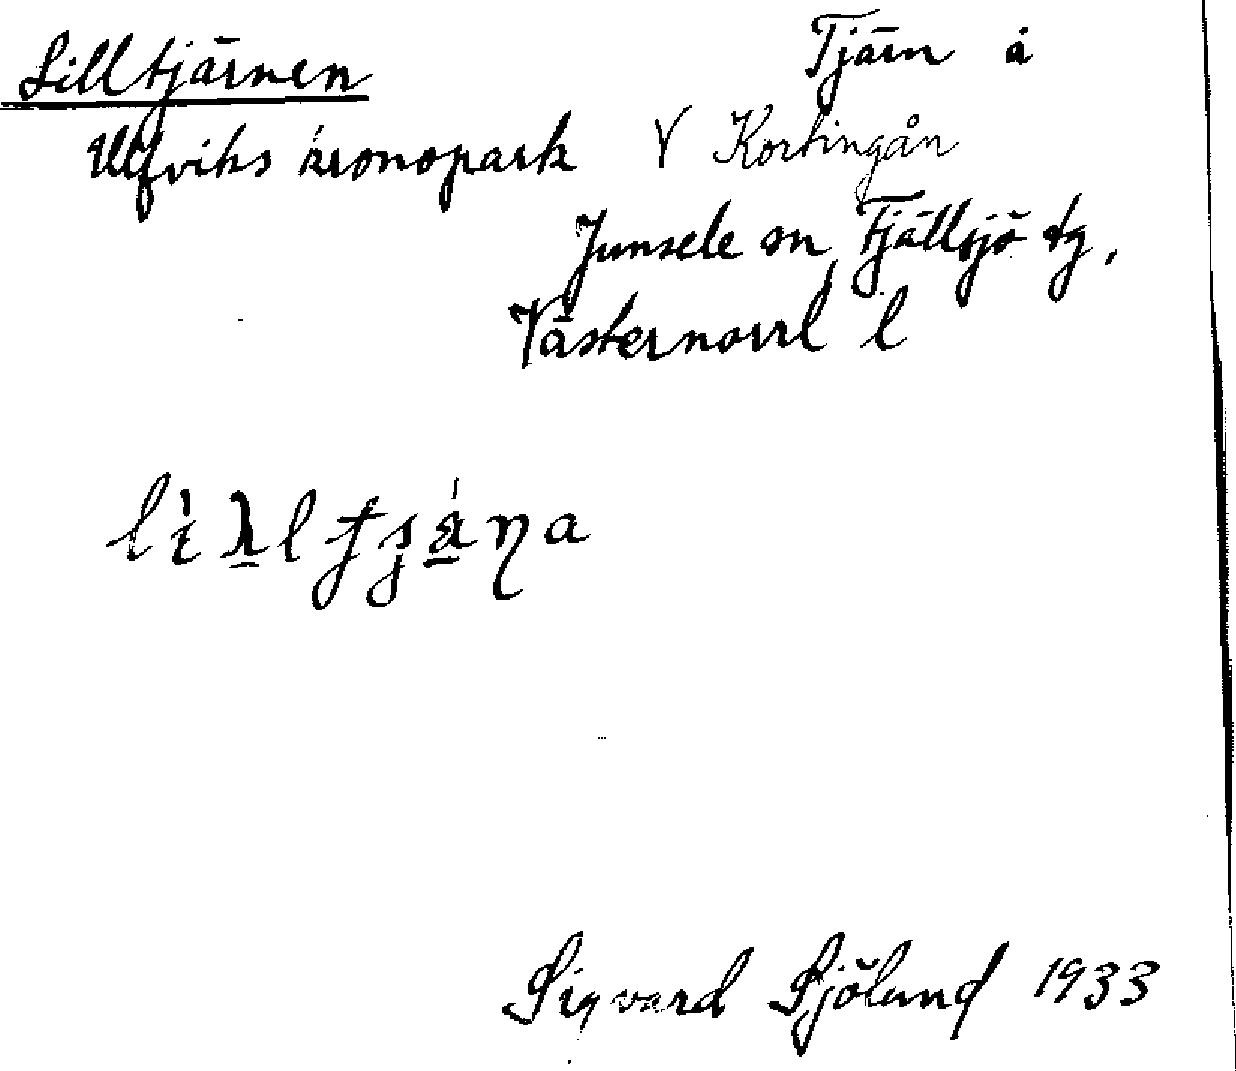 Lilltjärnen
Tjärn å
Ulfviks kronopark V Kortingån
Junsele sn Fjällsjö tg,
Västernorrl l
Sigvard Sjölund 1933